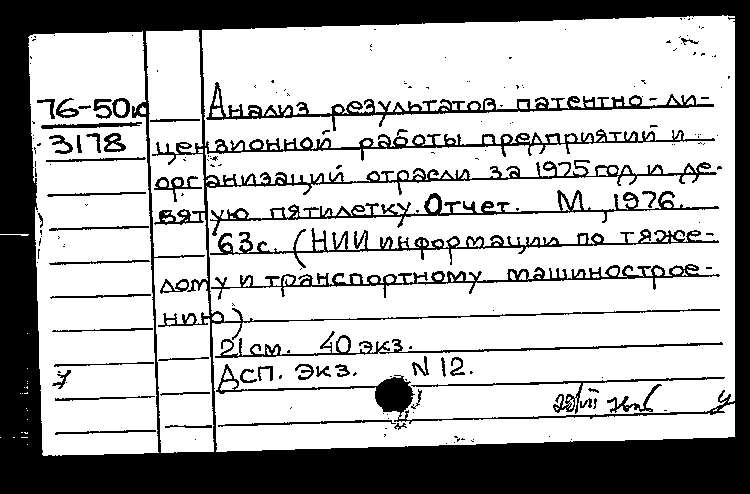 76-50ю
3178
Анализ результатов патентно-ли-
цензионной работы предприятий и
организаций отрасли за 1975 год и де-
вятую пятилетку. Отчет. М., 1976.
63 с. (НИИ информации по тяже-
лому и транспортному машинострое-
нию).
21 см. 40 экз.
ДСП. экз. N 12.
у